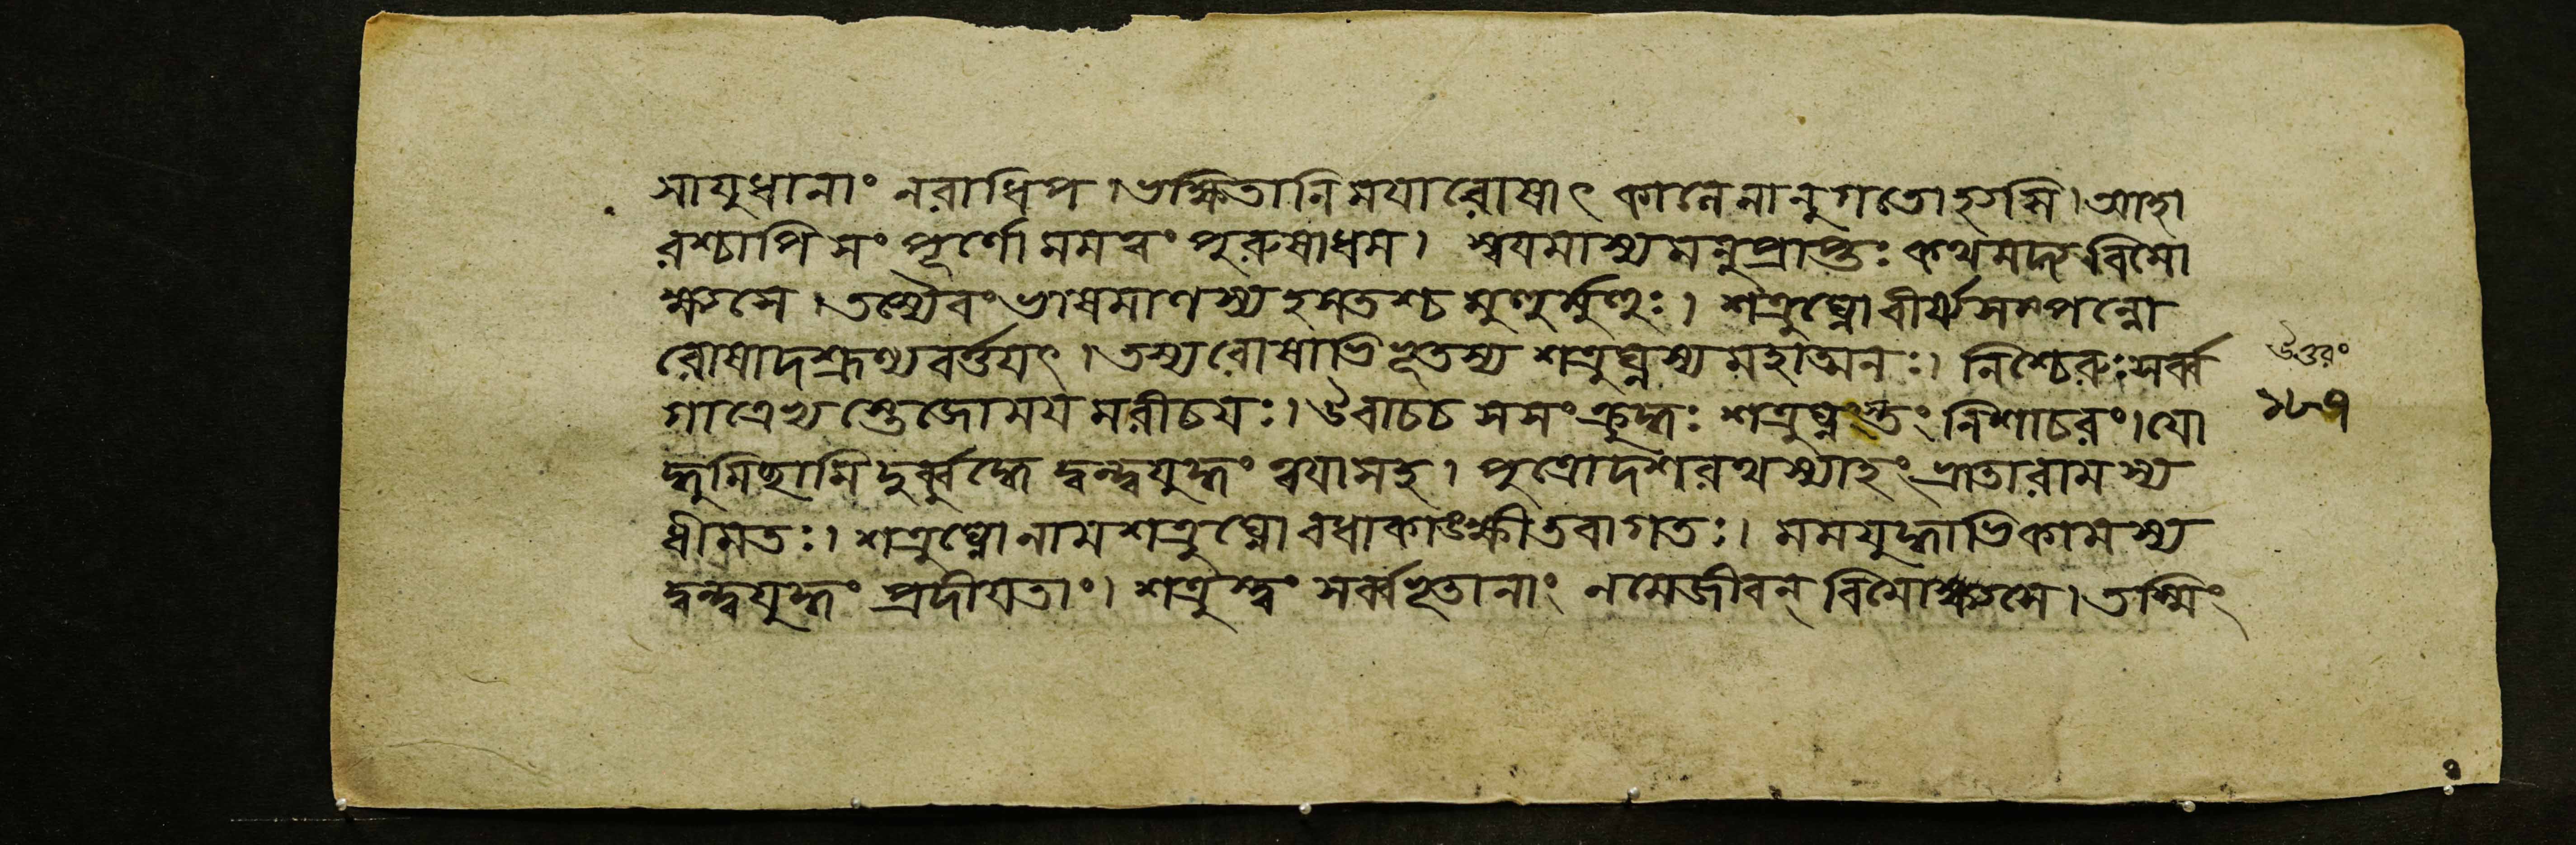 সাযুধানাং নরাধিপ।ভক্ষিতানি ময়া রোষাৎ কালেনানুগতো হ্যসি।আহা
রশ্চাপি সংপূর্ণো মমত্বং পুরুষাধম। স্বয়মাস্য মনুপ্রাপ্তঃ কথমদ্য বিমো
ক্ষ্যসে।তস্যৈবং ভাষমাণস্য হসতশ্চ মুহুর্মুহুঃ। শত্রুঘ্নো বীর্য্যসম্পন্নো
রোষাদশ্রূণ্যবর্ত্তয়ৎ।তস্য রোষাভিভূতস্য শত্রুঘ্নস্য মহাত্মনঃ। নিশ্চেরুঃ সর্ব্ব
গাত্রেভ্যস্তেজোময় মরীচয়ঃ। উবাচ চ সসংক্রুদ্ধঃ শত্রুঘ্নস্তং নিশাচরং। যো
দ্ধুমিচ্ছামি দুর্ব্বুদ্ধে দ্বন্দ্বযুদ্ধং ত্বয়া সহ। পুত্রো দশরথস্যাহং ভ্রাতা রামস্য
ধীমতঃ। শত্রুঘ্নো নাম শত্রুঘ্নো বধাকাঙ্ক্ষী তবাগতঃ। মম যুদ্ধাভিকামস্য
দ্বন্দ্বযুদ্ধং প্রদীয়তাং। শত্রুস্ত্বং সর্ব্বভূতানাং ন মে জীবন্ বিমোক্ষ্যসে। তস্মিং
উত্তরং
১৮৭